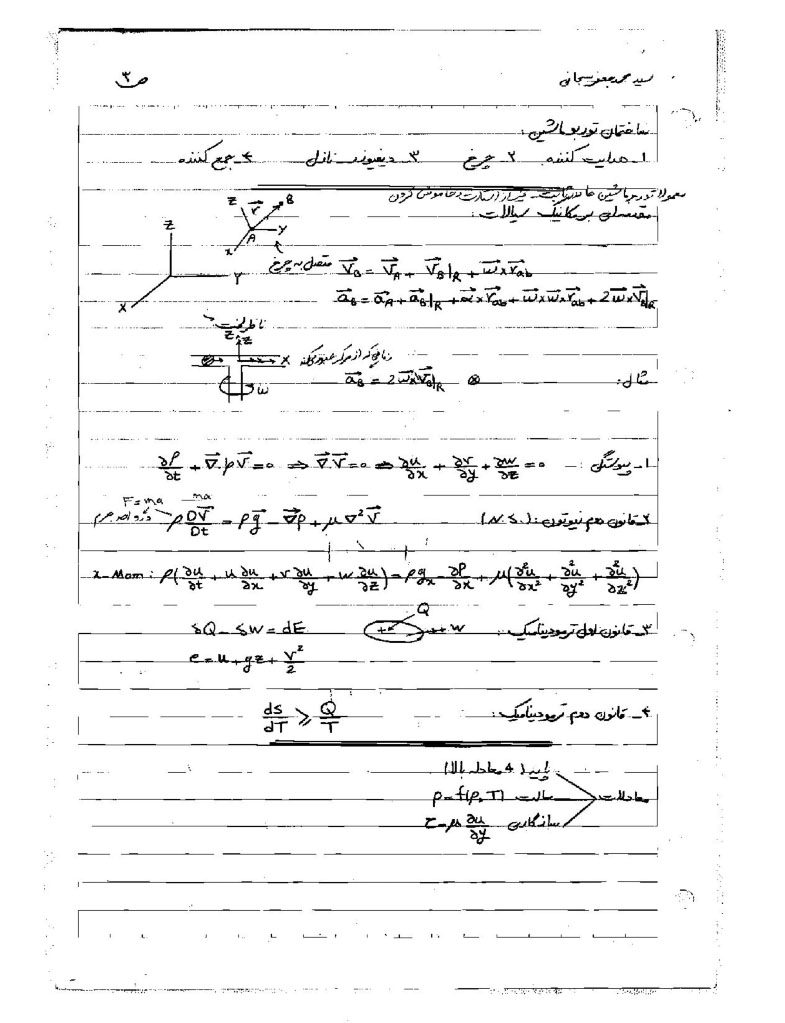 ص ۳
سید محمد جعفر سبحانی
ساختمان توربوماشین:
۱- هدایت کننده ۲- چرخ ۳- دیفیوزر - نازل ۴- جمع کننده
معمولا توربوماشین ها ثابت - غیر از استارت و خاموش کردن
مقدمه‌ای بر مکانیک سیالات:
Z
Y
X
Z
r
B
A
Y
X
متصل به چرخ V_B = V_A + V_B|R + ω×r_ab
a_B = a_A + a_B|R + α×r_ab + ω×ω×r_ab + 2ω×V_B|R
ناظر لخت
Z Z
X
زمانی که از مرکز عبور میکند
مثال: ⊗ a_B = 2ω×V_B|R
ω
۱- پیوستگی: ∂ρ/∂t + ∇.ρV = 0 ⇒ ∇V = 0 ⇒ ∂u/∂x + ∂v/∂y + ∂w/∂z = 0
F = ma
ma
۲- قانون دوم نیوتون: (N.S.) ρ DV/Dt = ρg - ∇p + μ∇²V
در واحد جرم
x-Mom: ρ(∂u/∂t + u ∂u/∂x + v ∂u/∂y + w ∂u/∂z) = ρg_x - ∂P/∂x + μ(∂²u/∂x² + ∂²u/∂y² + ∂²u/∂z²)
۳- قانون اول ترمودینامیک: Q w
δQ - δW = dE
e = u + gz + V²/2
۴- قانون دوم ترمودینامیک: ds/dT ⩾ Q/T
پایه (4 معادله بالا)
معادلات حالت ρ = f(P, T)
سازگاری τ = μ ∂u/∂y